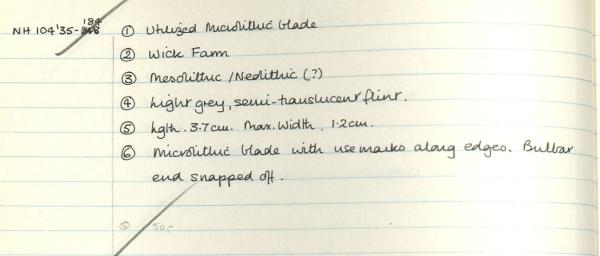 NH 104'35-184 ① Utilized Microlithic blade
② Wick Farm
③ Mesolithic / Neolithic (?)
④ Light grey, semi-translucent flint.
⑤ Lgth. 3.7cm. Max. Width. 1.2cm.
⑥ Microlithic blade with use marks along edges. Bulbar
end snapped off.